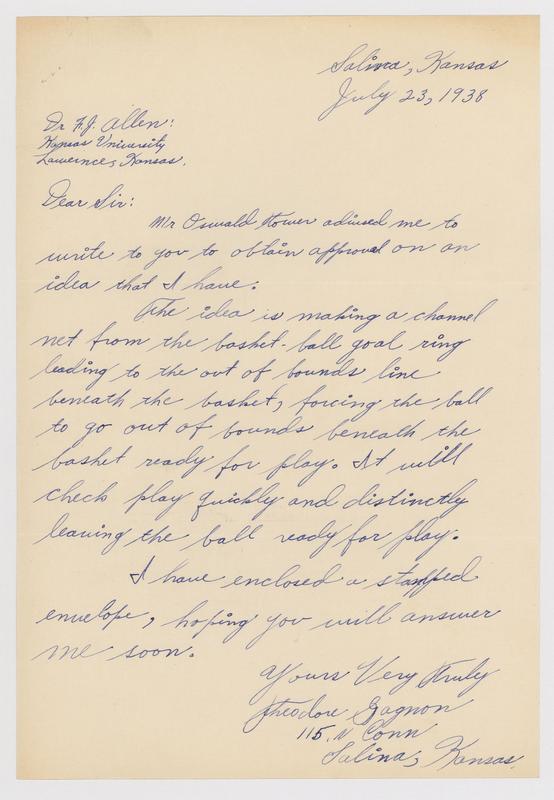 Salina, Kansas
July 23, 1938
Dr F.J. Allen:
Kansas University
Lawernce, Kansas.
Dear Sir:
Mr Oswald Tower adivsed me to
write to you to obtain approval on an
idea that I have.
The idea is making a channel
net from the basket-ball goal ring
leading to the out of bounds line
beneath the basket, forcing the ball
to go out of bounds beneath the
basket ready for play. It will
check play quickly and distinctly
leaving the ball ready for play.
I have enclosed a stamped
envelope, hoping you will answer
me soon.
Yours Very Truly
Theodore Gagnon
115. N Conn
Salina, Kansas.